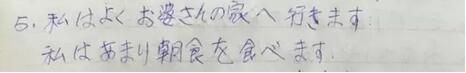 5. 私はよくお婆さんの家へ行きます.
私はあまり朝食を食べます.